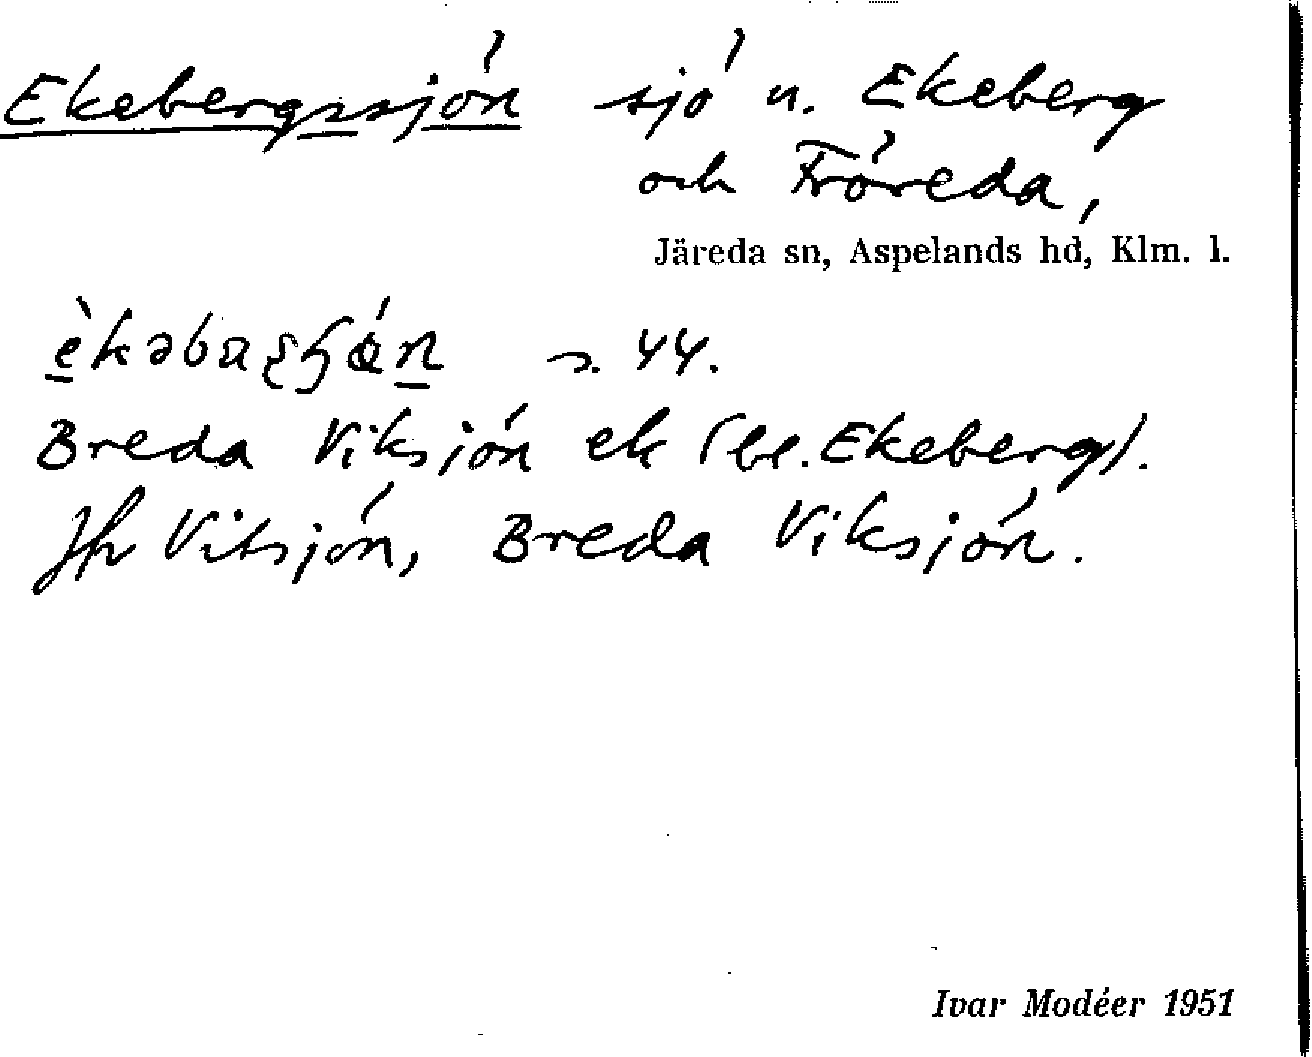 Ekebergssjön sjö n. Ekeberg
och Fröreda,
Järeda sn, Aspelands hd, Klm. l.
s. 44.
Breda Viksjön ek (bl. Ekeberg).
Jfr Vitsjön, Breda Viksjön.
Ivar Modéer 1951